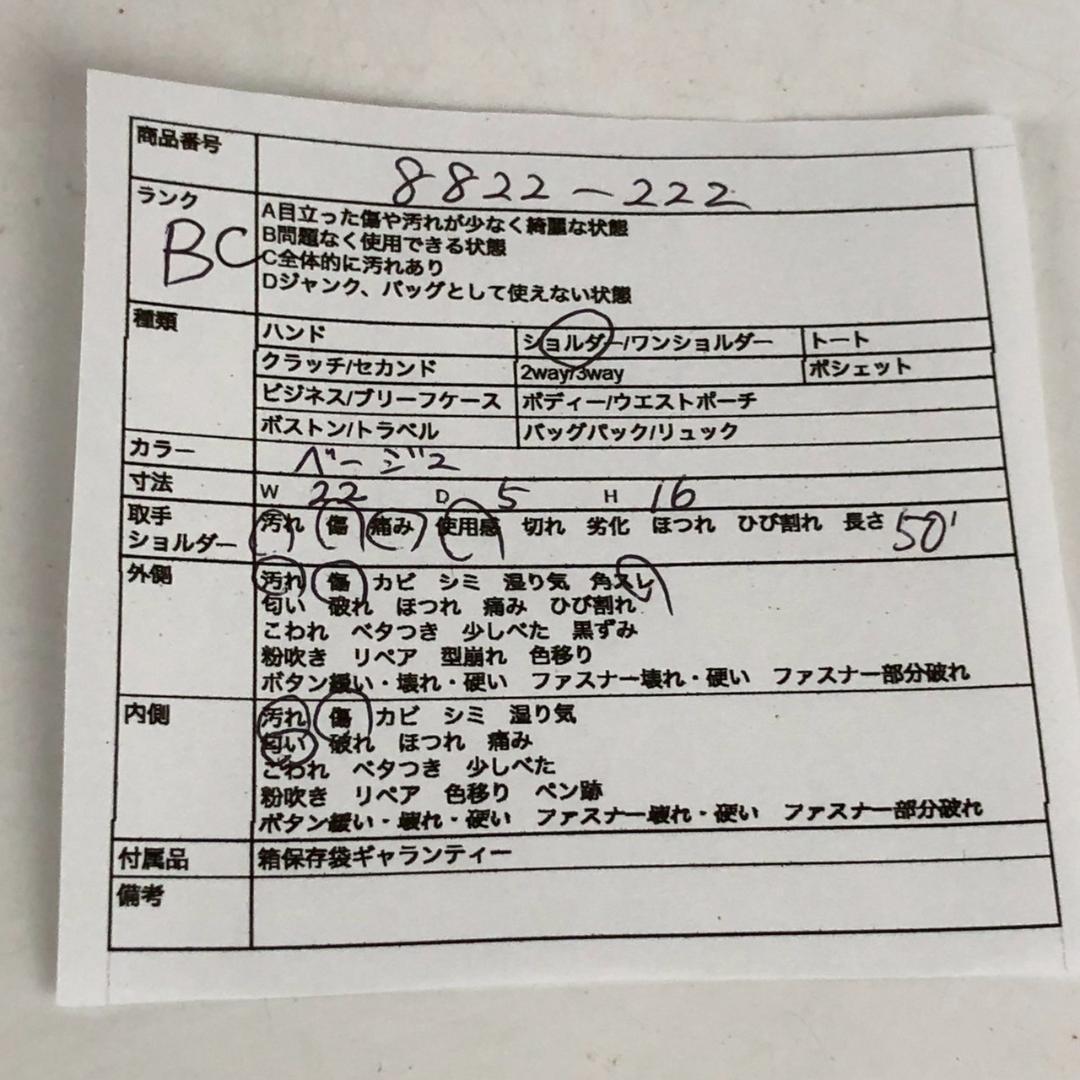 商品番号 8822-222
ランク BC
A目立った傷や汚れが少なく綺麗な状態
B問題なく使用できる状態
C全体的に汚れあり
Dジャンク、バッグとして使えない状態
種類
ハンド ショルダー/ワンショルダー トート
クラッチ/セカンド 2way/3way ポシェット
ビジネス/ブリーフケース ボディー/ウエストポーチ
ボストン/トラベル バッグパック/リュック
カラー ベージュ
寸法 W 22 D 5 H 16
取手
ショルダー
汚れ 傷 痛み 使用感 切れ 劣化 ほつれ ひび割れ 長さ 50
外側
汚れ 傷 カビ シミ 湿り気 角スレ
匂い 破れ ほつれ 痛み ひび割れ
こわれ ベタつき 少しべた 黒ずみ
粉吹き リペア 型崩れ 色移り
ボタン緩い・壊れ・硬い ファスナー壊れ・硬い ファスナー部分破れ
内側
汚れ 傷 カビ シミ 湿り気
匂い 破れ ほつれ 痛み
こわれ ベタつき 少しべた
粉吹き リペア 色移り ペン跡
ボタン緩い・壊れ・硬い ファスナー壊れ・硬い ファスナー部分破れ
付属品 箱保存袋ギャランティー
備考